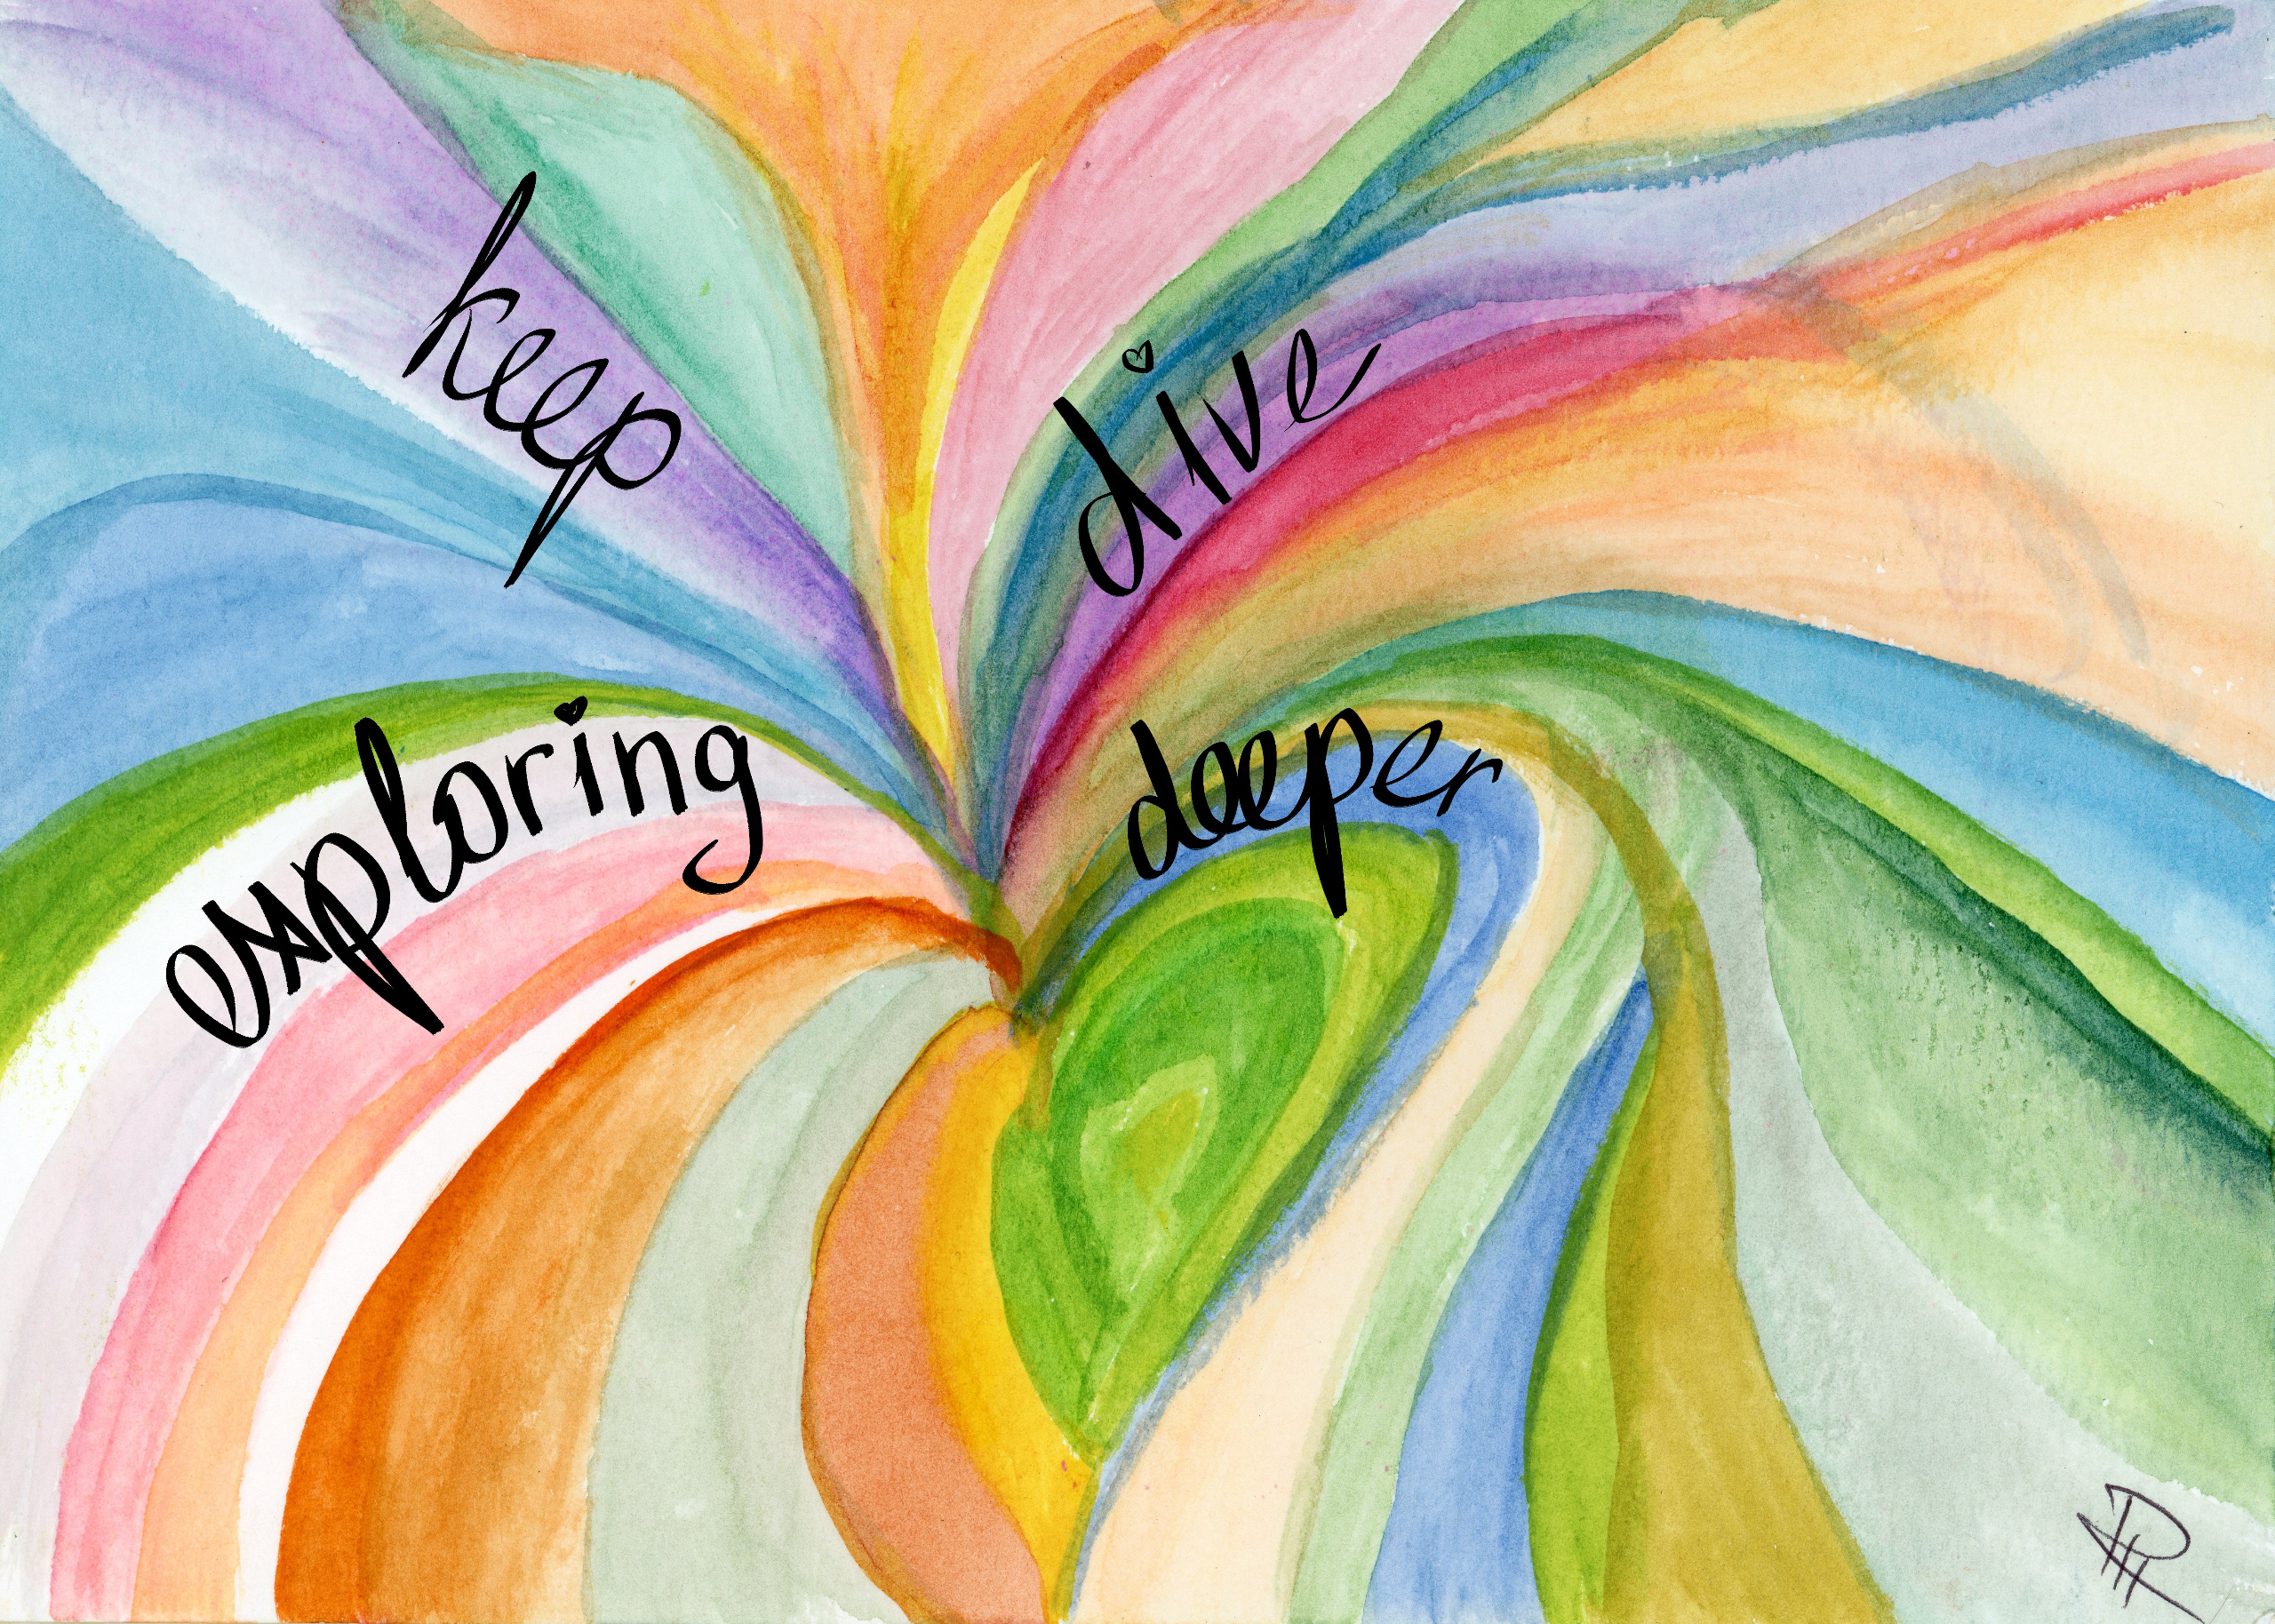 keep
exploring
dive
deeper